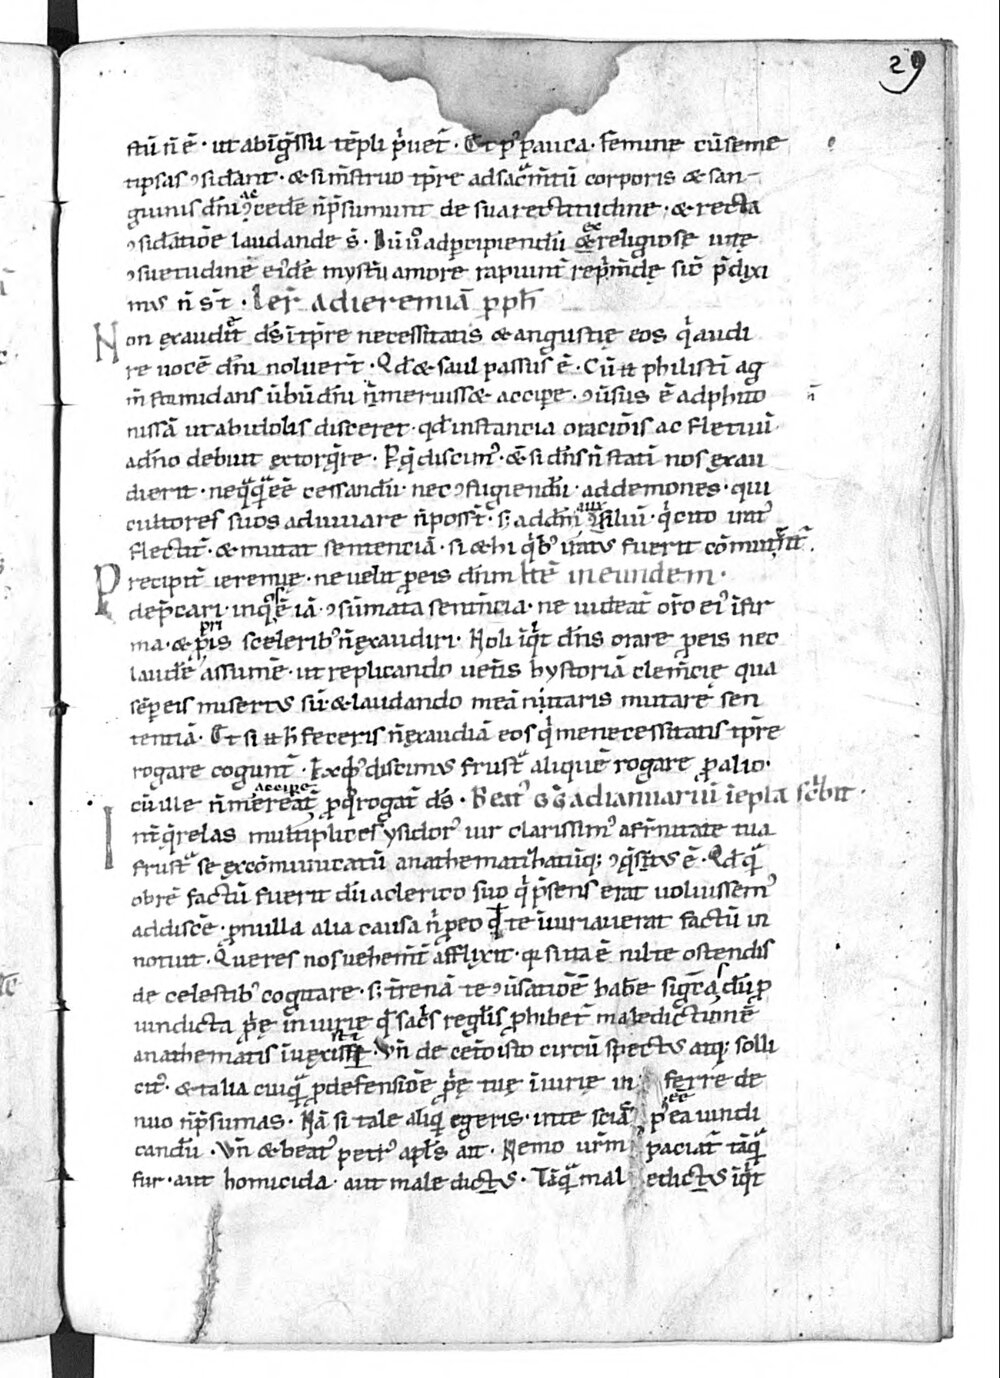 29
stū n̄ ē · ut ab īg̃ssu tēpli p̓uet᷑ · Et p᷒ pauca · femine cū seme
tipsas ꝯsid̃ant · & si m̄struo tp̄re ad sac̃m̄tū corporis & san-
guinis dn̄i ac̃cede n̄ p̃sumunt de sua rectitudine · & recta
ꝯsid̃atiōe laudande s̄ · Dū ũo ad ꝑcipiendū ex religiose uitę
ꝯsuetudinē ei᷒dē mystīi amore rapiunt᷑ rep̓m̄dę sic̄ p̃dixi
m᷒ n̄ s̄t · Ier̄ ad ieremiā ꝓph̄
Non exaudit ds̄ ī tp̄re necessitatis & angustię eos q̓ audi
re uocē dn̄i noluer̄t · Qd̄ & saul passus ē · Cū .n. philistī ag
m̄ stīmidans ūbū dn̄i n̄ meruiss& accipe · ꝯūsus ē ad phito
nissā ut ab idolis disceret · qd̄ instancia oraciōis ac fletiuū
a dn̄o debuit extorq̄re · Ex q̓ discim᷒ · & si dn̄s n̄ statī nos exau
dierit · neq̃q̃ ēē cessandū · nec ꝯfugiendū · ad demones · qui
cultores suos adiuuare n̄ poss̄t · s; ad dn̄i auxiliū · q̓ cito irat᷒
flectit᷑ · & mutat sentenciā · si & hi q̓b᷒ iratus fuerit cōmutēt᷑ ·
Precipit᷑ ieremię · ne uelit ꝓ eis dn̄m In eundem ·
dep̃cari · inq̓s ē iā · ꝯsūmata sent̄ncia · ne uideat᷑ or̄o ei᷒ īfir
ma · & ꝓ p̓is scelerib᷒ n̄ exaudiri · Noli īq̓t dn̄s orare ꝓ eis nec
laudē assume · ut replicando uet̄is hystoriā clem̄cię qua
sēꝑ eis misertus sū · & laudando meā nitaris mutare sen
tentiā · Et si .n. h̄ feceris n̄ exaudiā eos q̓ me necessitatis tp̄re
rogare cogunt᷑ · Ex q̓ discimus frust̃ aliquē rogare ꝓ alio ·
cū ille n̄ mereat᷑ accipe ꝓ q̊ rogat᷑ ds̄ · Beat᷒ GG̃ ad ianuariū īepl̄a sc̓bit ·
Int̄ q̓relas multiplices ysidor᷒ uir clarissim᷒ a fr̄nitate tua
frust̃ se excōmunicatū anathematizatūq; ꝯq̄stus ē · Qd̄ q̃
ob rē factū fuerit dū a clerico suo q̓ p̃sens erat uoluissem᷒
addisce · ꝓ nulla alia causa n̄ ꝓ eo qd̄ te īniuriauerat factū in
notuit · Que res nos uehem̄t̄ afflixit · qr̄ si ita ē nil te ostendis
de celestib᷒ cogitare · s; t̄renā te ꝯūsatiōē habe sigr̄cas dū ꝓ
uindicta ꝓp̓ę iniurie qd̄ sac̓s reglīs ꝓhibet᷑ maledictionē
anathematis īuexisti · Vn̄ de cet̄o isto circū spectus atq; solli
cit᷒ · & talia cuiq̃ ꝓ defensiōe ꝓp̓ę tuę īiurie in ferre de
nuo n̄ p̃sumas · Nā si tale aliq̓ egeris · in te scias p᷒ ēē ea uindi
candū · Vn̄ & beat᷒ petr᷒ apl̄s ait · Nemo ur̄m paciat᷑ tāq̃
fur · aut homicida · aut male dictus · Tāq̃ mal edictus īq̓t